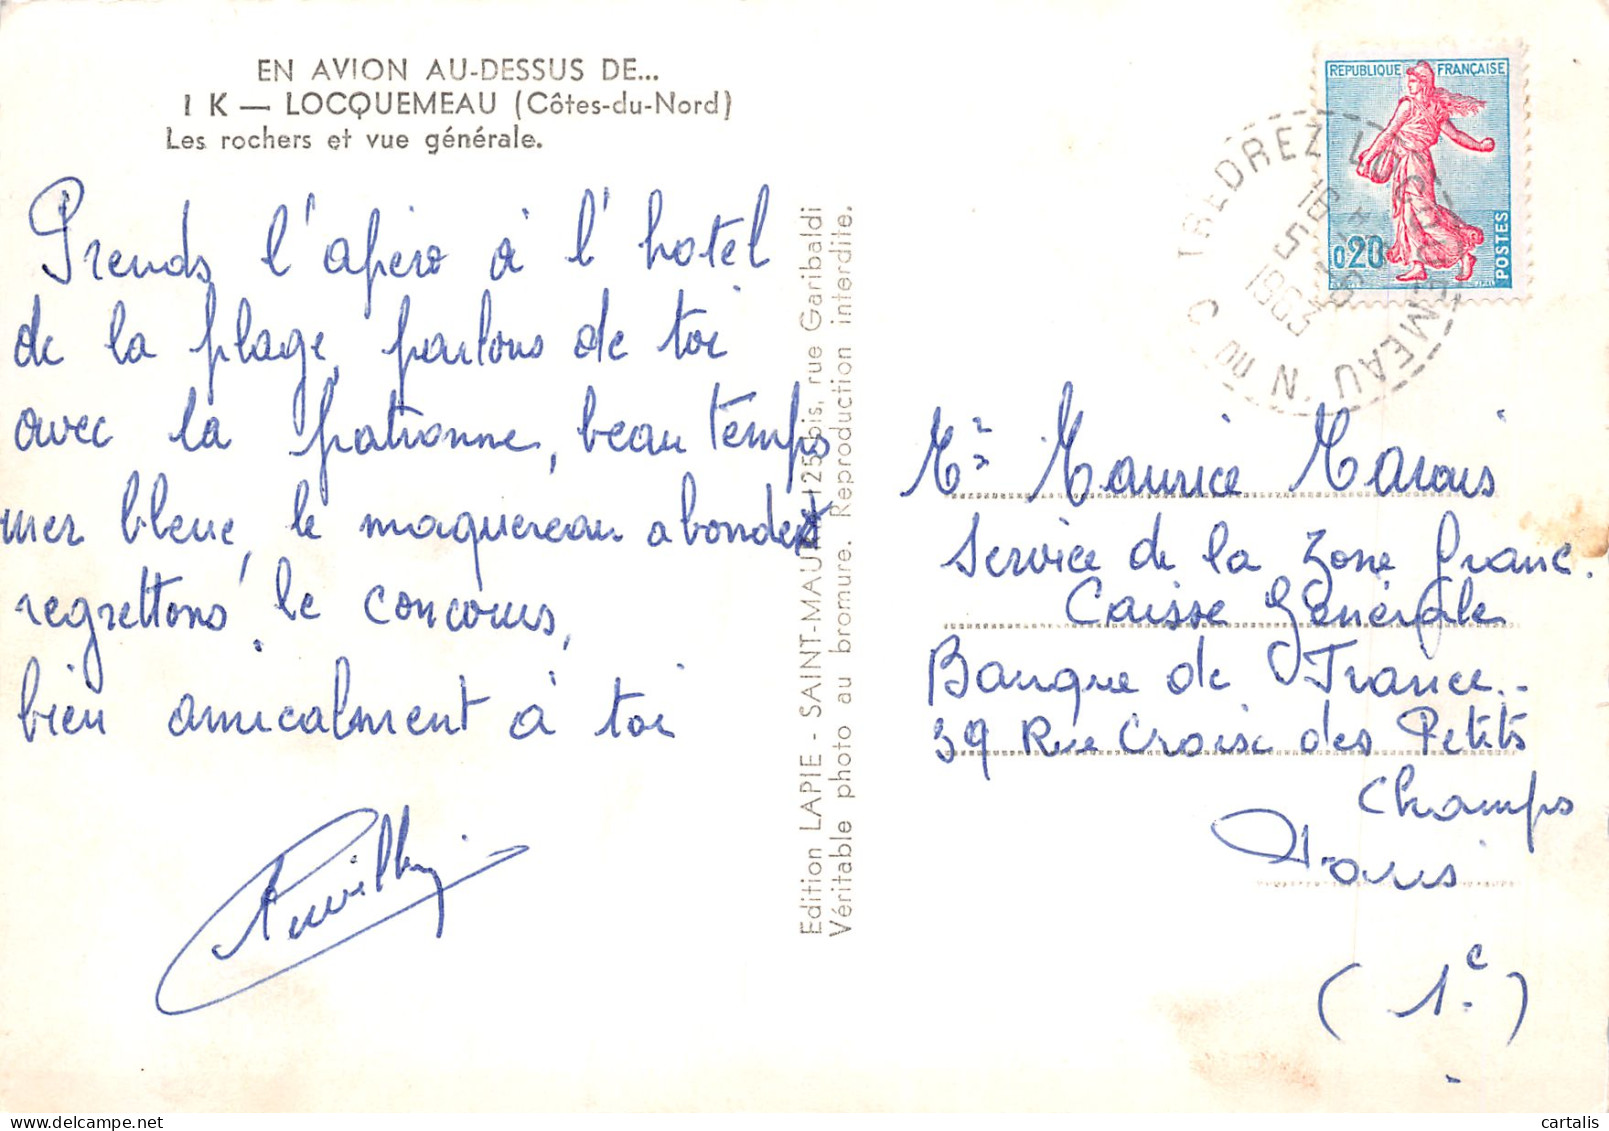 EN AVION AU-DESSUS DE...
1 K — LOCQUEMEAU (Côtes-du-Nord)
Les rochers et vue générale.
Prends l'apéro à l'hotel
de la plage, parlons de toi
avec la patronne, beau temps
mer bleue, le maquereau abondent
regrettons le concours,
bien amicalment à toi
Edition LAPIE - SAINT-MAUR 125 bis, rue Garibaldi
Véritable photo au bromure. Reproduction interdite.
REPUBLIQUE FRANÇAISE
0,20
POSTES
TREDREZ LOCQUEMEAU
C. DU N.
16 *
5 - 9
1963
Mr Maurice Marais
Service de la Zone Franc.
Caisse Générale
Banque de France
39 Rue Croix des Petits
Champs
Paris
(1e)
cartalis